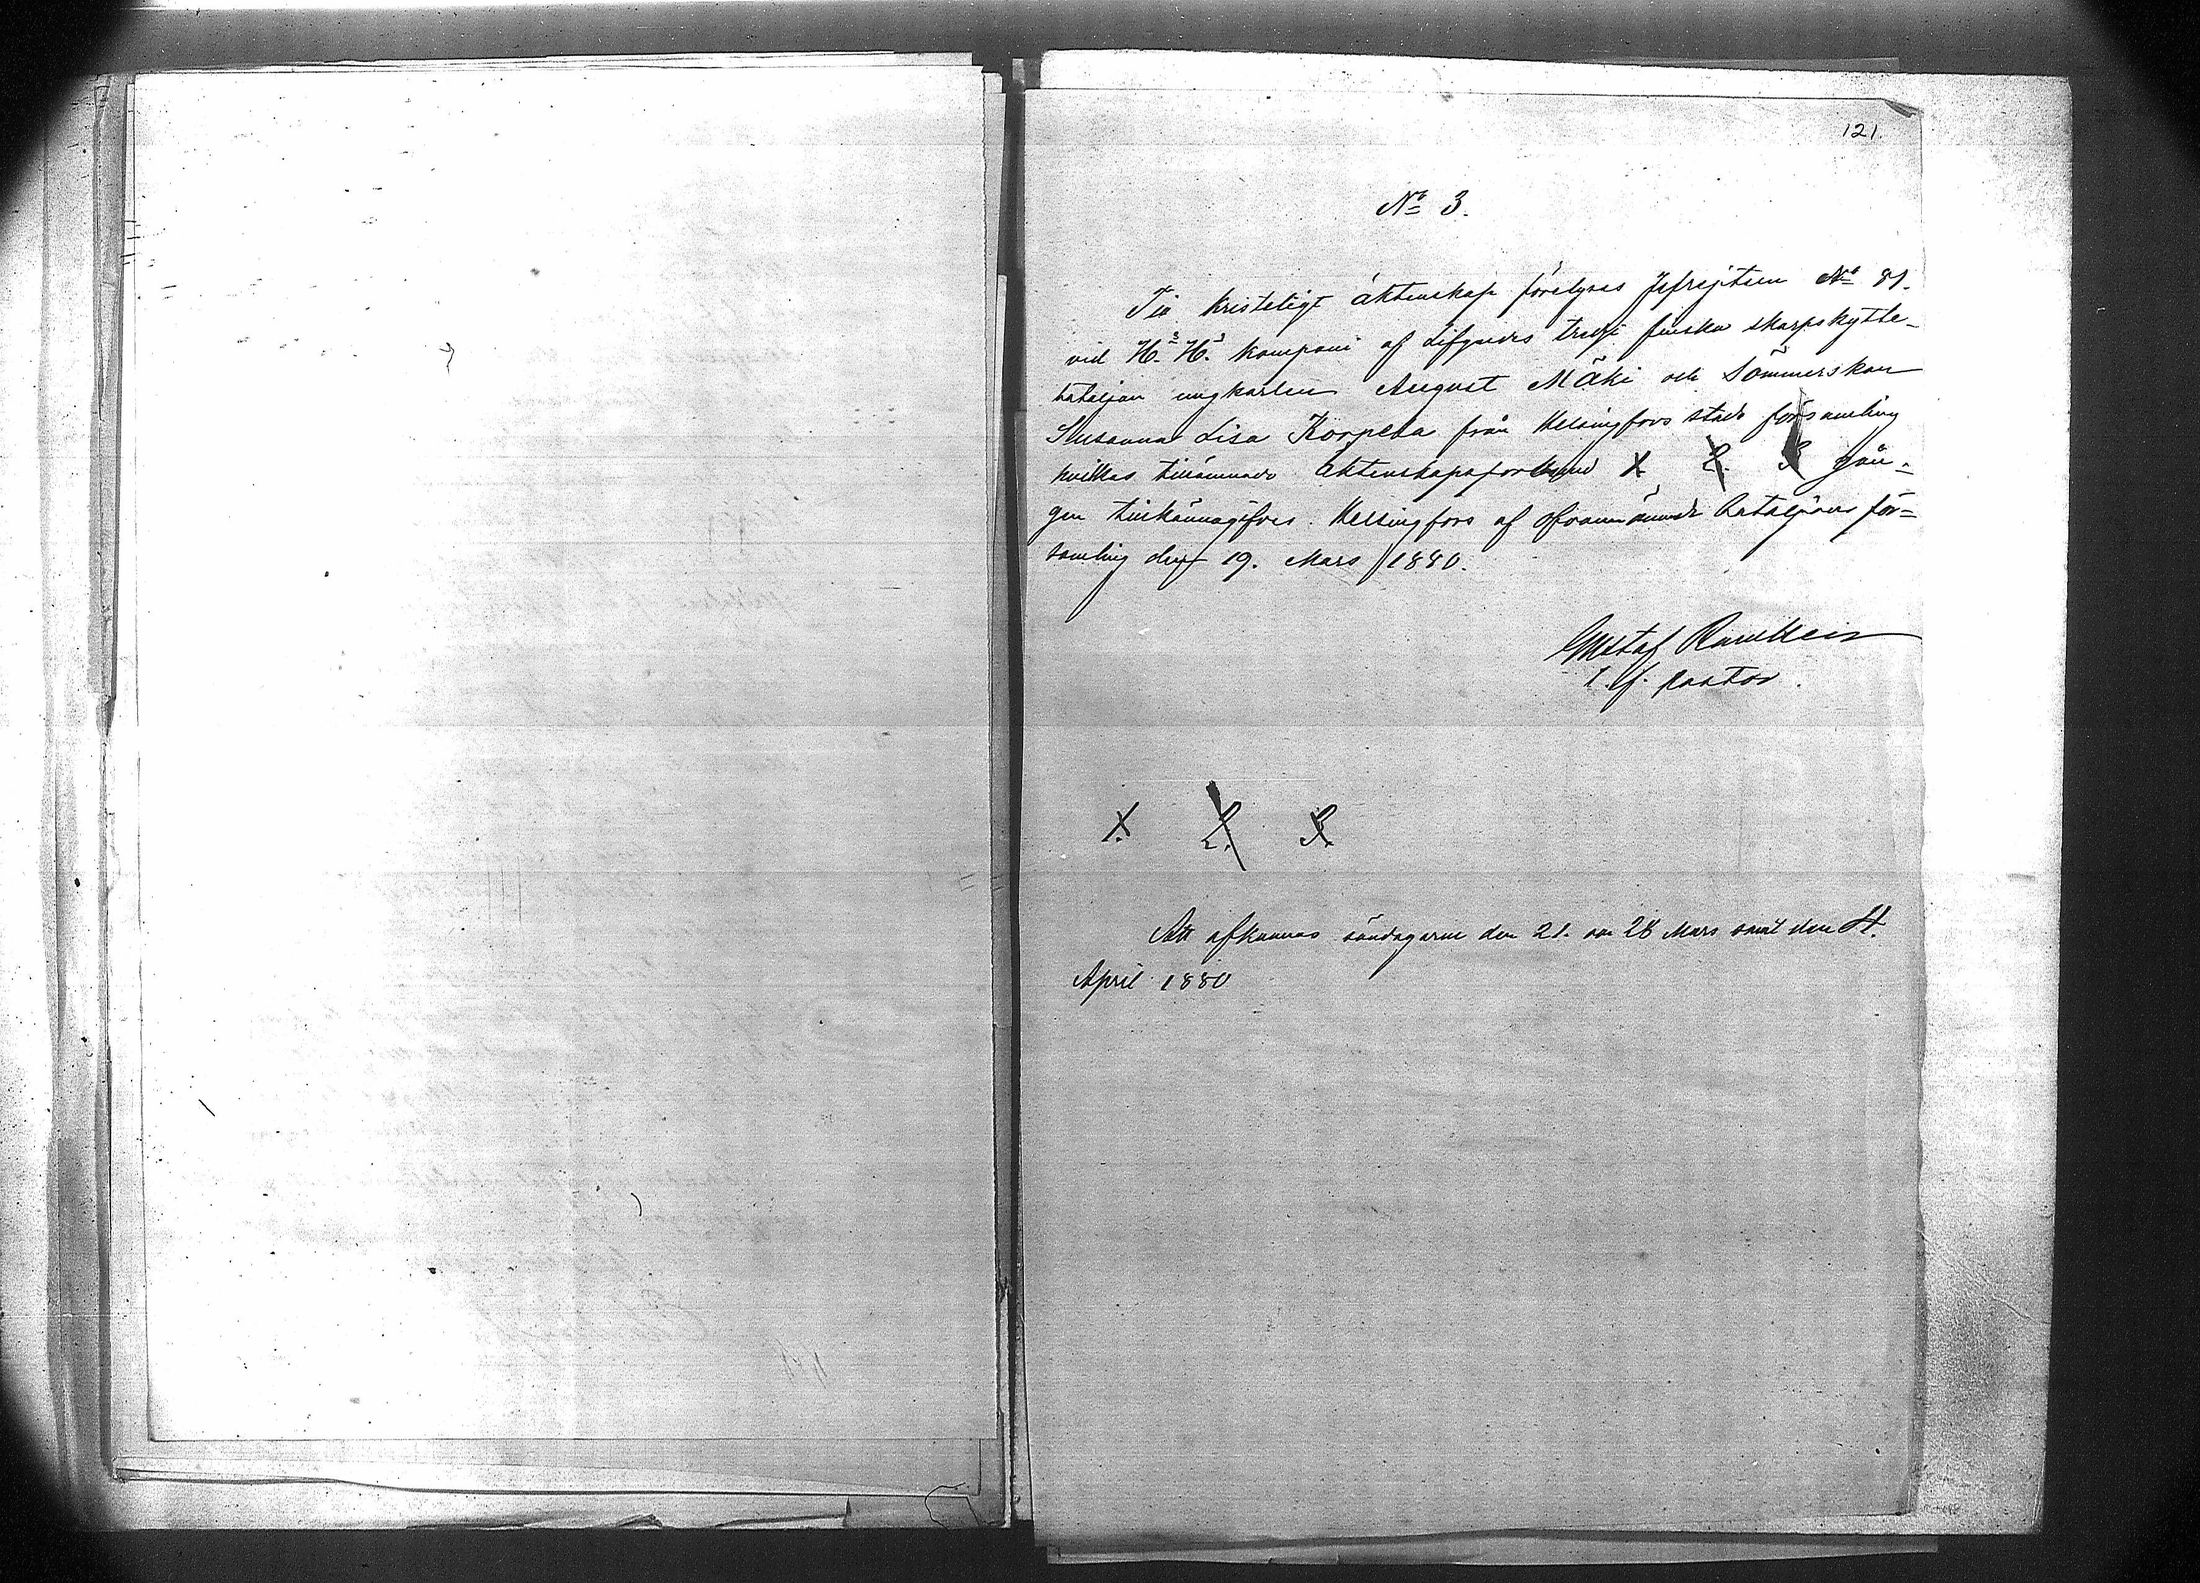 121.
No 3.
Till kristeligt äktenskap förelyses Jefrejtern No 81.
vid H.s H.s kompani af Lifgardes tredje finska skarpskytte-
bataljon ungkarlen August Mäki och Sömmerskan
Susanna Lisa Korpela från Helsingfors stads församling
hvilkas tillämnade äktenskapsförbund 1. 2. 3. gån-
gen tillkännagifves. Helsingfors af ofvannämnde bataljons för-
samling den 19. Mars 1880.
Gustaf
t. f. pastor.
1. 2. 3.
Att afkunnas söndagarne den 21. och 28 Mars samt den 4.
April 1880